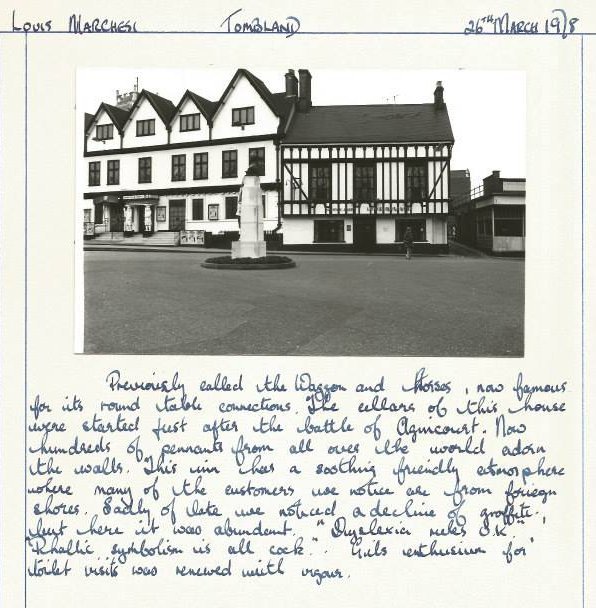 Louis Marchesi Tombland 26TH March 1978
Previously called the Waggon and Horses, now famous
for its round table connections. The cellars of this house
were started just after the battle of Agincourt. Now
hundreds of pennants from all over the world adorn
the walls. This inn has a soothing friendly atmosphere
where many of the customers we notice are from foriegn
shores. Sadly of late we noticed a decline of graffite,
but here it was abundent. "Dyslexia rules O.K.",
"Phallic symbolism is all cock". Gils enthusium for
toilet visits was renewed with vigour.